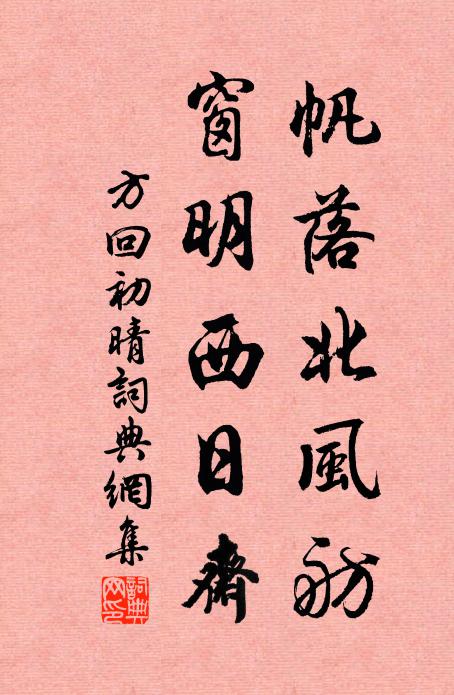 帆落北風舫
窗明西日齋
方回初晴詞典網集
詞典網印